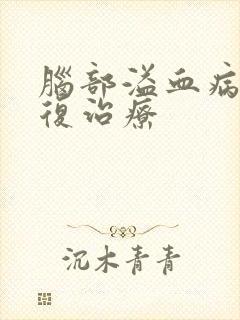 腦部溢血病
復治療
沉木青青